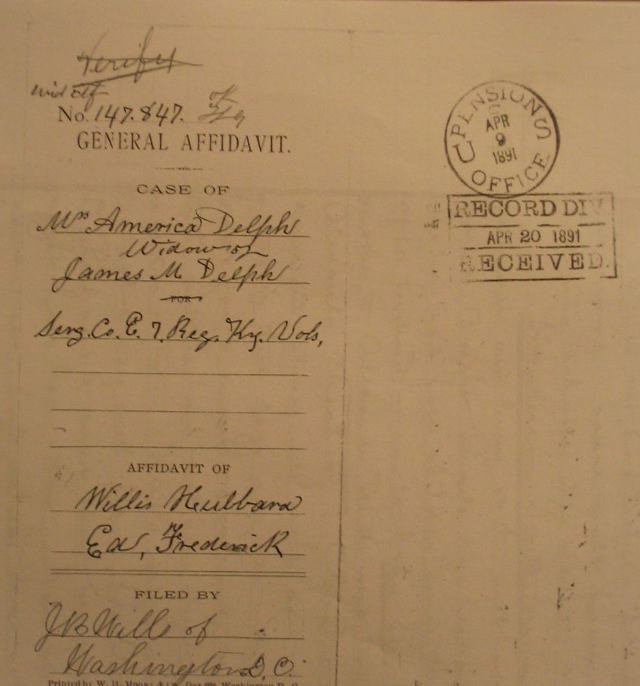 Verify
wid of
No. 147.847.
GENERAL AFFIDAVIT.
CASE OF
Mrs America Delph
Widow of
James M Delph
FOR
Serg. Co. E. 7, Reg. Ky. Vols,
AFFIDAVIT OF
Willis Hubbard
Ed, Frederick
FILED BY
J B Wills of
Washington D. C.
Printed by W. H. Washington D. C.
U.S. PENSION OFFICE
APR
9
1891
RECORD DIV
APR 20 1891
RECEIVED.